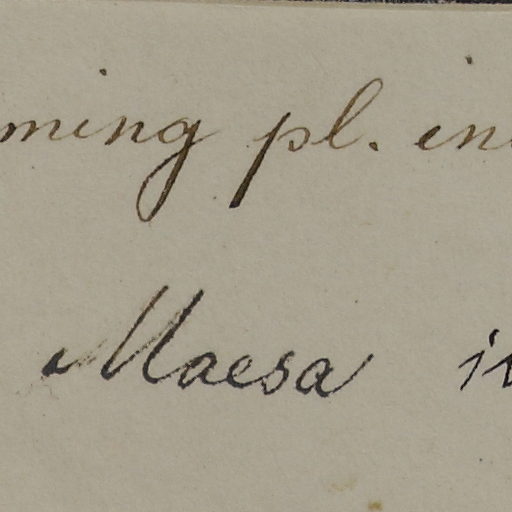 ming pl. in
Maesa i